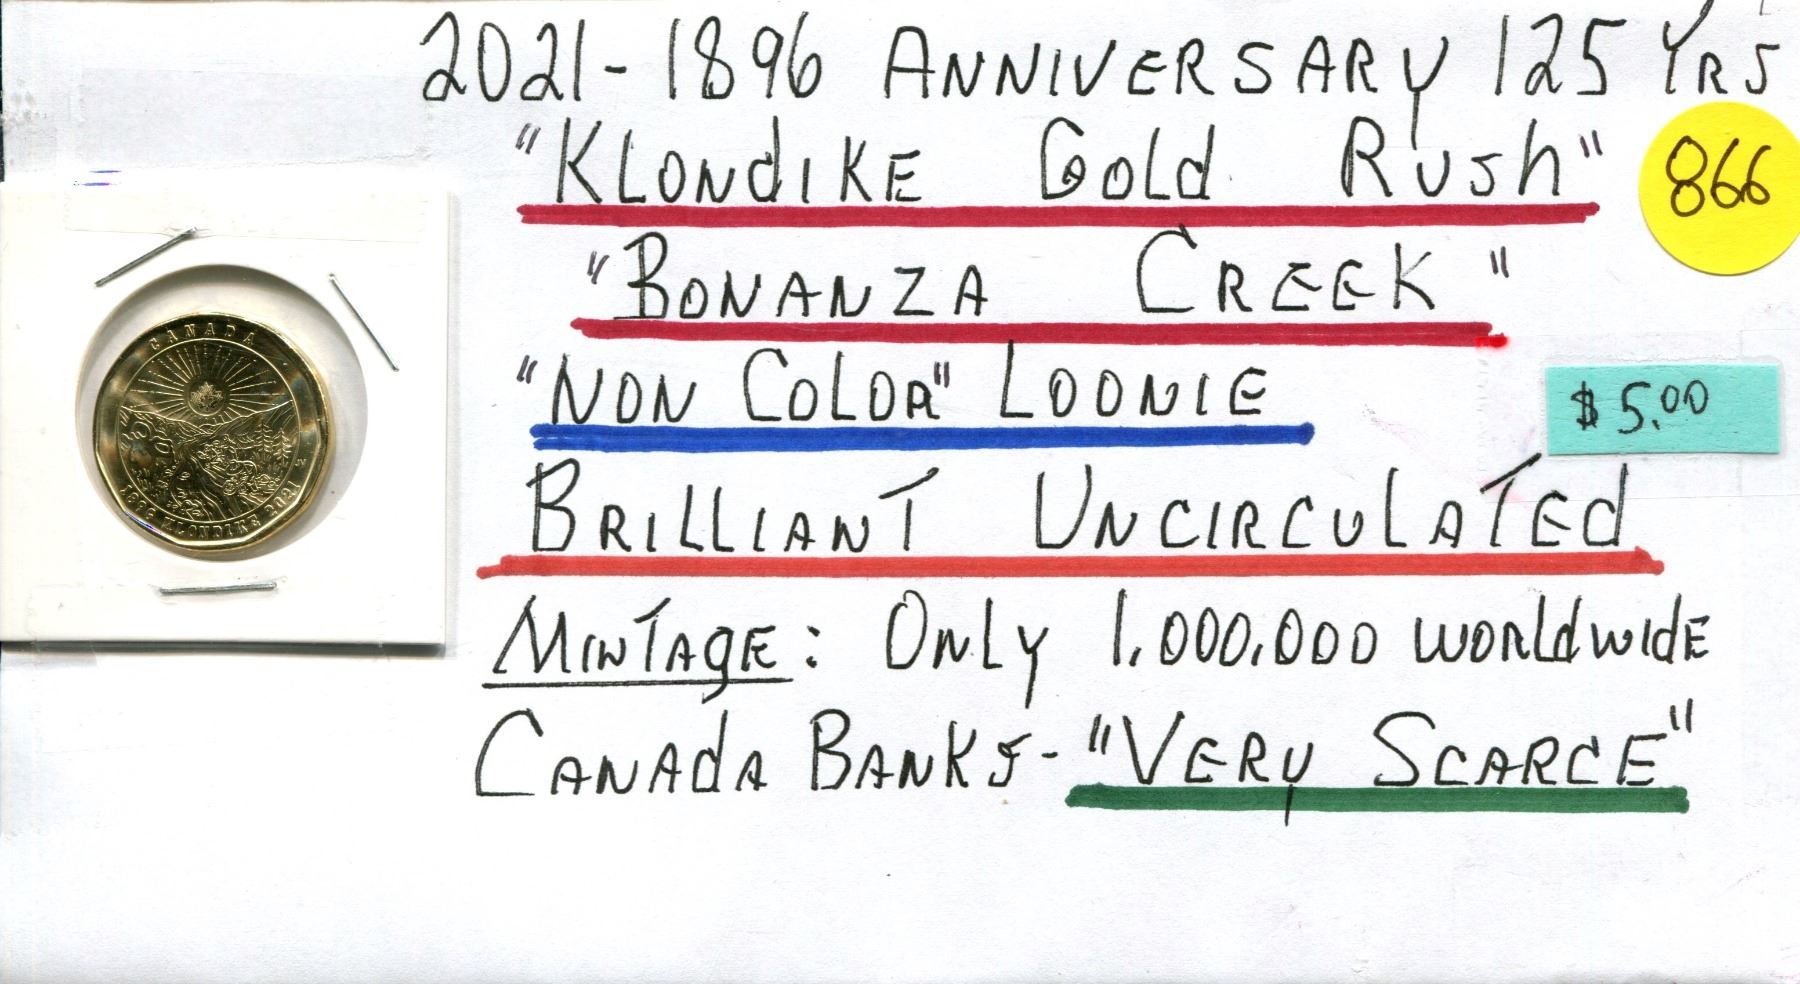 2021-1896 ANNIVERSARY 125 YRS
"KLONDIKE GOLD RUSH"
866
"BONANZA CREEK"
"NON COLOR" LOONIE
$5.00
BRILLIANT UNCIRCULATED
MINTAGE: ONLY 1,000,000 WORLDWIDE
CANADA BANKS - "VERY SCARCE"
CANADA
1896 KLONDIKE 2021